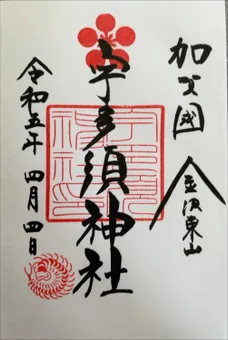 加賀國
金沢東山
宇多須神社
令和五年 四月四日